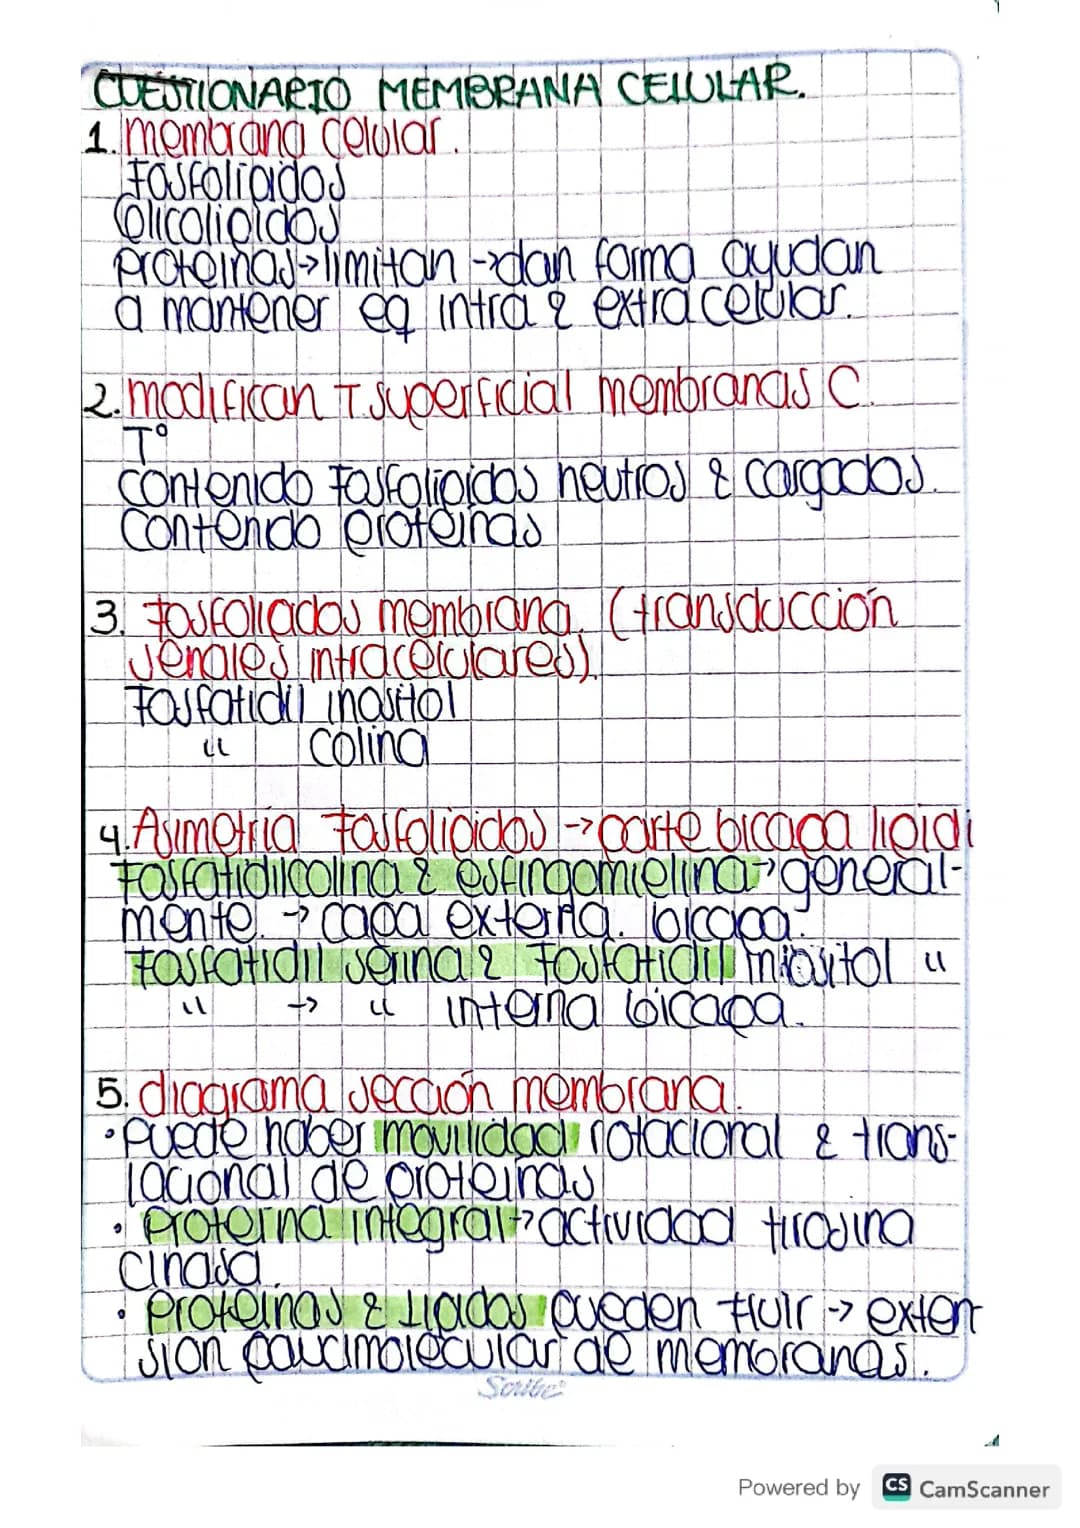 CUESTIONARIO MEMBRANA CELULAR.
1. membrana celular.
Fosfolípidos
Glicolipidos
proteinas→limitan →dan forma ayudan
a mantener eq intra & extracelular.
2. modifican T superficial membranas C.
T°
contenido Fosfolipidos neutros & cargados.
contenido proteinas
3. Fosfolípidos membrana. (transducción
señales intracelulares).
Fosfatidil inositol
" colina
4. Asimetría Fosfolipidos → parte bicapa lipidi
Fosfatidilcolina & esfingomielina→general-
mente → capa externa bicapa.
Fosfatidil serina & Fosfatidil iniositol "
" → " interna bicapa.
5. diagrama sección membrana.
•puede haber movilidad rotacional & trans-
lacional de proteinas
• Proteina integral→actividad tirosina
cinasa.
• Proteinas & Lipidos pueden fluir → exten
sion paucimolecular de membranas.
Scribe
Powered by CS CamScanner